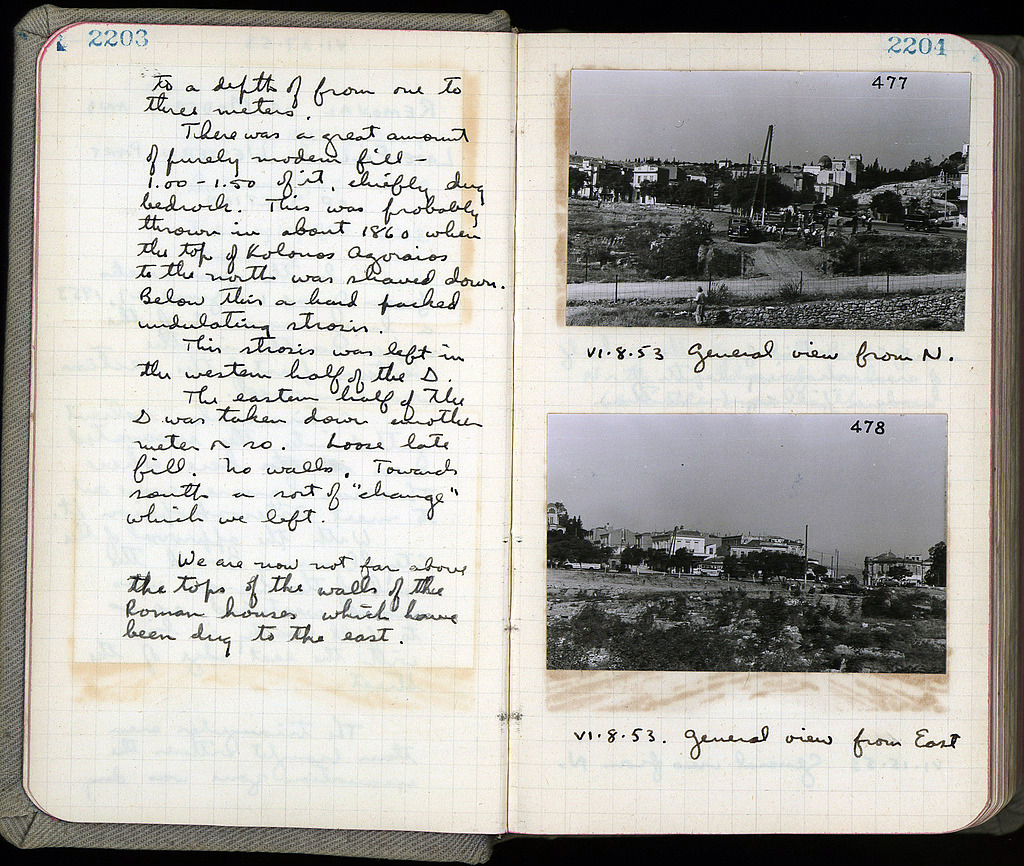 2203
to a depth of from one to
three meters.
There was a great amount
of purely modern fill -
1.00 - 1.50 of it, chiefly dug
bedrock. This was probably
thrown in about 1860 when
the top of Kolonos Agoraios
to the north was shaved down.
Below this a hard packed
undulating strosis.
This strosis was left in
the western half of the D.
The eastern half of the
D was taken down another
meter or so. Loose late
fill. No walls. Towards
south a sort of "change"
which we left.
We are now not far above
the tops of the walls of the
Roman houses which have
been dug to the east.
2204
477
VI.8.53 General view from N.
478
VI.8.53. General view from East